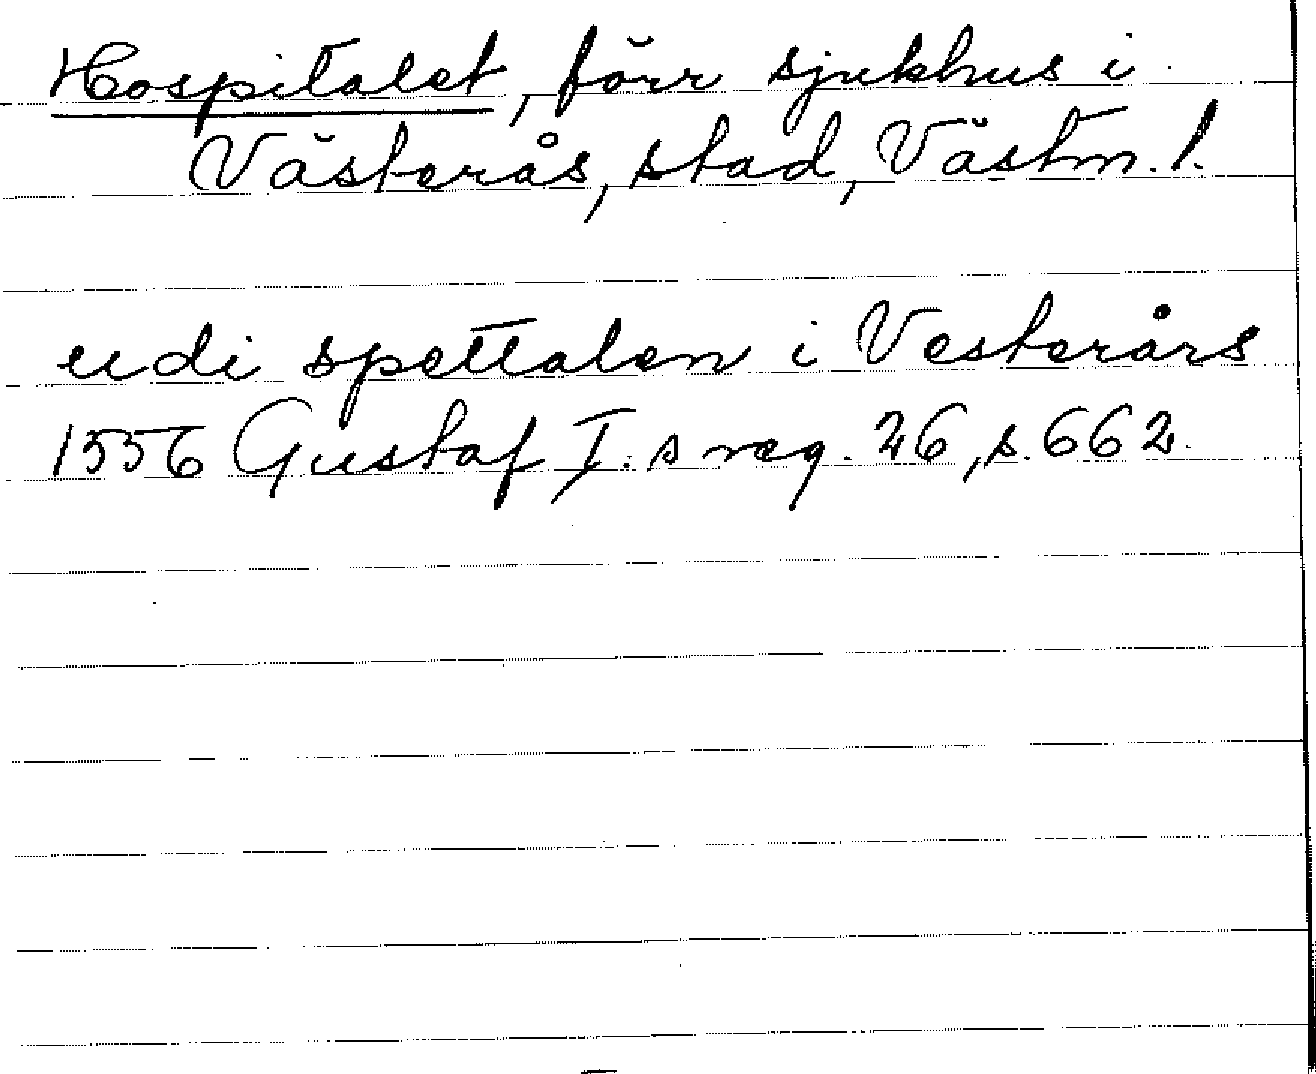 Hospitalet, förr sjukhus i
Västerås, stad, Västm. l.
udi spettalen i Vesterårs
1556 Gustaf I.s reg. 26, s. 662.